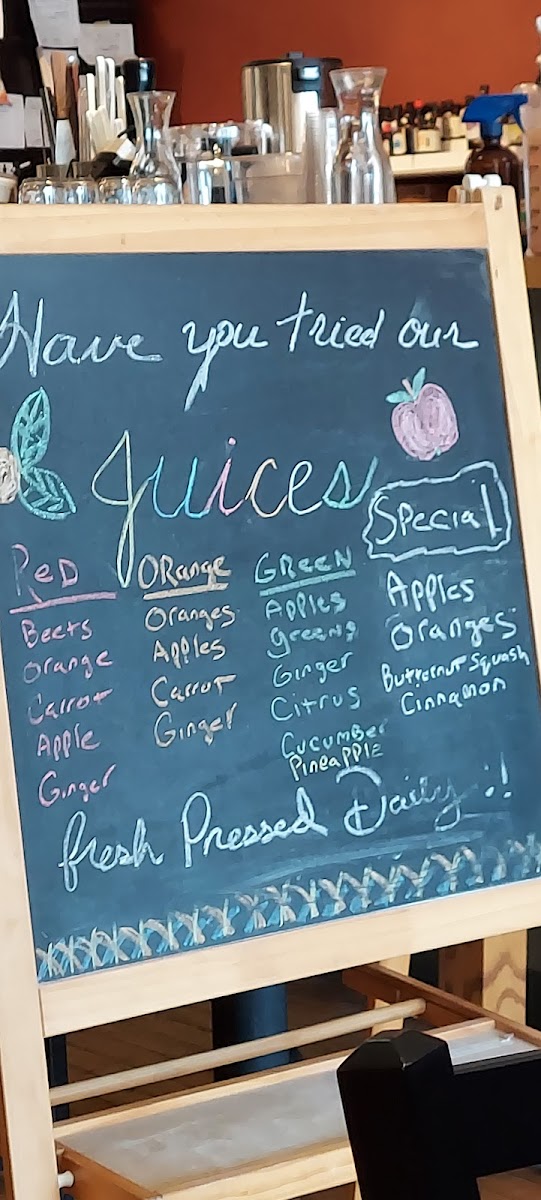 Have you tried our
Juices
Special
Red
Beets
Orange
Carrot
Apple
Ginger
ORange
Oranges
Apples
Carrot
Ginger
GReeN
Apples
greens
Ginger
Citrus
Cucumber
Pineapple
Apples
Oranges
Butternut Squash
Cinnamon
fresh Pressed Daily !!